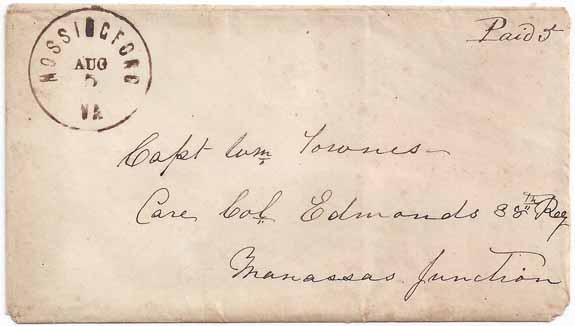 MOSSINGFORD
AUG
5
VA
Paid 5
Capt Wm. Townes
Care Col. Edmonds 38th Reg
Manassas Junction